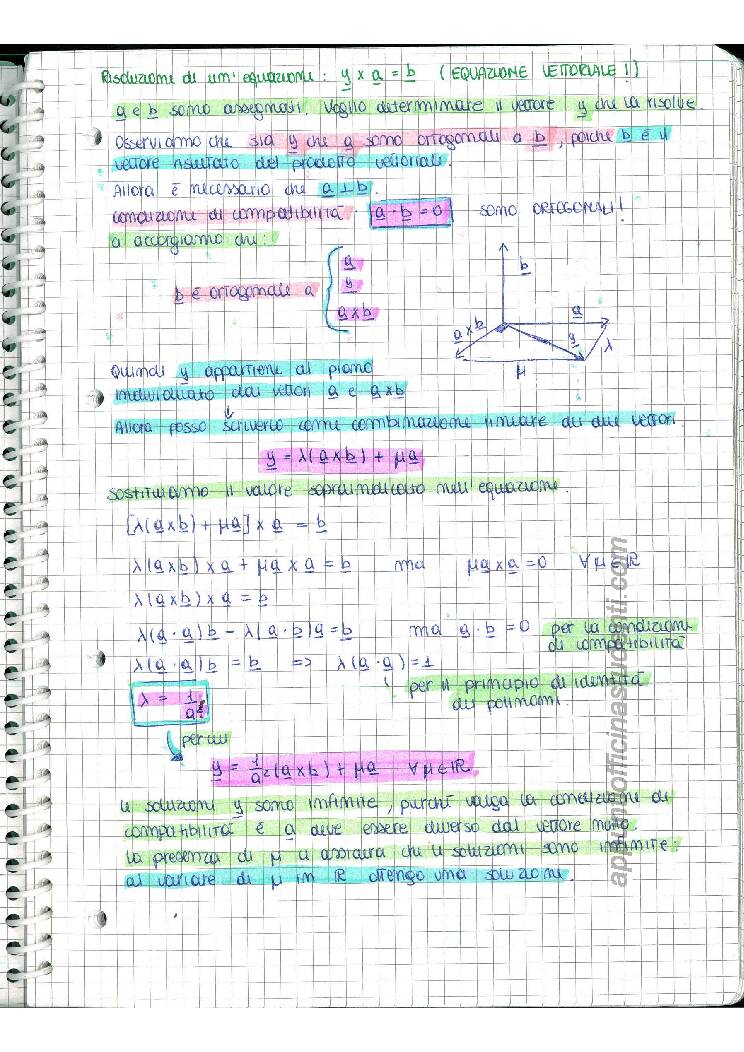 Risoluzione di un' equazione: y x a = b (EQUAZIONE VETTORIALE!)
a e b sono assegnati. Voglio determinare il vettore y che la risolve.
Osserviamo che sia y che a sono ortogonali a b, poichè b è il
vettore risultato del prodotto vettoriale.
Allora è necessario che a ⊥ b.
condizione di compatibilità. a · b = 0 sono ORTOGONALI!
Ci accorgiamo che:
b è ortogonale a { a
y
a x b
b
a
a x b
y
λ
μ
Quindi y appartiene al piano
individuato dai vettori a e a x b
Allora posso scriverlo come combinazione lineare dei due vettori.
y = λ(a x b) + μa
Sostituiamo il valore sopraindicato nell'equazione.
[λ(a x b) + μa] x a = b
λ(a x b) x a + μa x a = b ma μa x a = 0 ∀μ∈ℝ
λ(a x b) x a = b
λ(a · a)b − λ(a · b)a = b ma a · b = 0 per la condizione
di compatibilità
λ(a · a)b = b => λ(a · a) = 1
per il principio di identità
dei polinomi.
λ = 1/a²
per cui
y = 1/a² (a x b) + μa ∀μ∈ℝ
Le soluzioni y sono infinite, purchè valga la condizione di
compatibilità e a deve essere diverso dal vettore nullo.
La presenza di μ ci assicura che le soluzioni sono infinite:
al variare di μ in ℝ ottengo una soluzione.
appuntiofficinastudenti.com